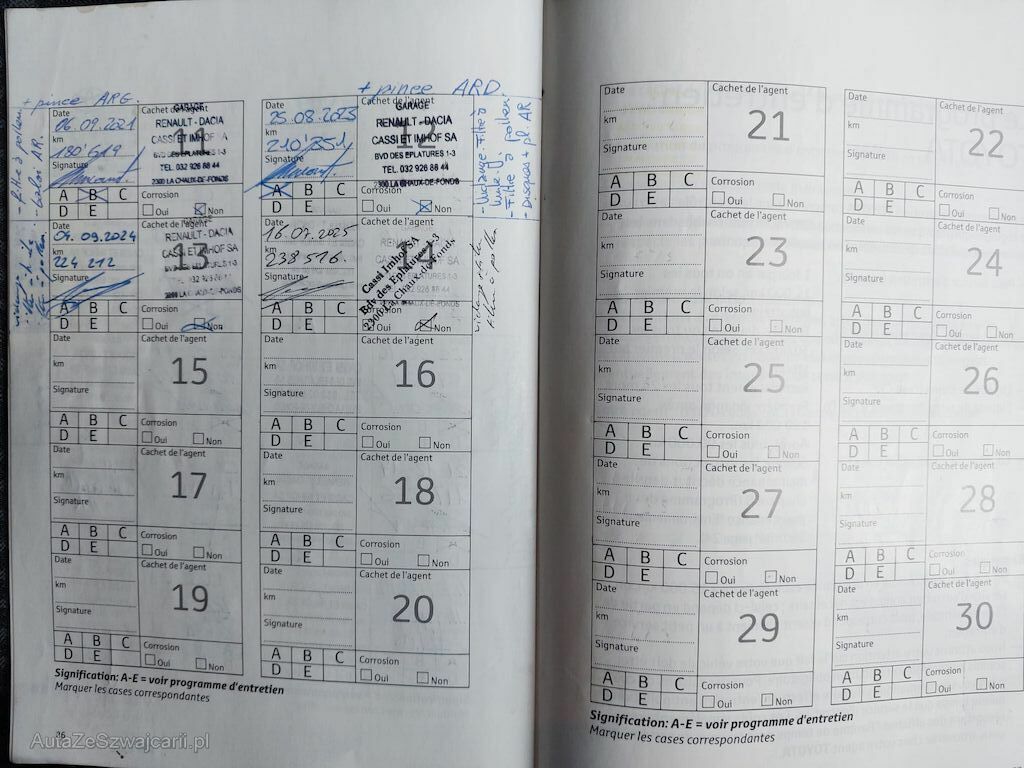 + pince ARG.
+ pince ARD.
- filtre à pollen
AR.
Date
06.09.2021
km
180'619
Signature
Cachet de l'agent
11
GARAGE
RENAULT - DACIA
CASSI ET IMHOF SA
BVD DES EPLATURES 1-3
TEL. 032 926 88 44
2300 LA CHAUX-DE-FONDS
A B C
D E
Corrosion
Oui Non
Date
25.08.2023
km
210'351
Signature
Cachet de l'agent
12
GARAGE
RENAULT - DACIA
CASSI ET IMHOF SA
BVD DES EPLATURES 1-3
TEL. 032 926 88 44
2300 LA CHAUX-DE-FONDS
A B C
D E
Corrosion
Oui Non
- Vidange-Filtre à
huile
- Filtre à pollen
- Disques + pl AR
09.09.2024
km
224 212
Signature
13
RENAULT - DACIA
CASSI ET IMHOF SA
BVD DES EPLATURES 1-3
TEL. 032 926 88 44
2300 LA CHAUX-DE-FONDS
A B C
D E
Corrosion
Oui Non
16.07.2025
km
238516.
Signature
14
Cassi Imhof SA
Bdv des Eplatures 1-3
2300 La Chaux-de-Fonds
A B C
D E
Corrosion
Oui Non
Date
km
Signature
Cachet de l'agent
15
A B C
D E
Corrosion
Oui Non
Date
km
Signature
Cachet de l'agent
16
A B C
D E
Corrosion
Oui Non
Date
km
Signature
Cachet de l'agent
17
A B C
D E
Corrosion
Oui Non
Date
km
Signature
Cachet de l'agent
18
A B C
D E
Corrosion
Oui Non
Date
km
Signature
Cachet de l'agent
19
A B C
D E
Corrosion
Oui Non
Date
km
Signature
Cachet de l'agent
20
A B C
D E
Corrosion
Oui Non
Signification: A-E = voir programme d'entretien
Marquer les cases correspondantes
36
AutaZeSzwajcarii.pl
Date
km
Signature
Cachet de l'agent
21
A B C
D E
Corrosion
Oui Non
Date
km
Signature
Cachet de l'agent
22
A B C
D E
Corrosion
Oui Non
Date
km
Signature
Cachet de l'agent
23
A B C
D E
Corrosion
Oui Non
Date
km
Signature
Cachet de l'agent
24
A B C
D E
Corrosion
Oui Non
Date
km
Signature
Cachet de l'agent
25
A B C
D E
Corrosion
Oui Non
Date
km
Signature
Cachet de l'agent
26
A B C
D E
Corrosion
Oui Non
Date
km
Signature
Cachet de l'agent
27
A B C
D E
Corrosion
Oui Non
Date
km
Signature
Cachet de l'agent
28
A B C
D E
Corrosion
Oui Non
Date
km
Signature
Cachet de l'agent
29
A B C
D E
Corrosion
Oui Non
Date
km
Signature
Cachet de l'agent
30
A B C
D E
Corrosion
Oui Non
Signification: A-E = voir programme d'entretien
Marquer les cases correspondantes